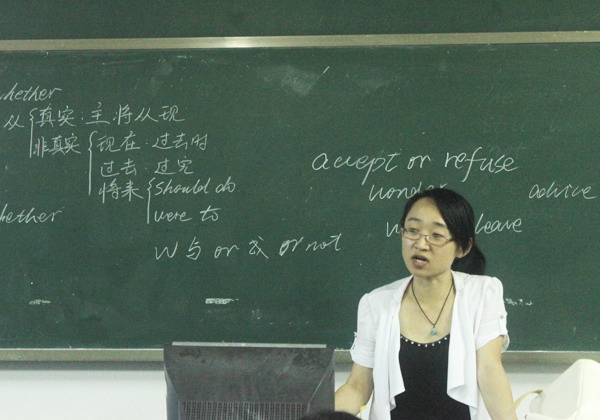 whether
从 真实·主·将从现
非真实 现在·过去时
过去·过完
将来 should do
were to
whether
W 与 or 或 or not
accept or refuse
wonder advice
leave